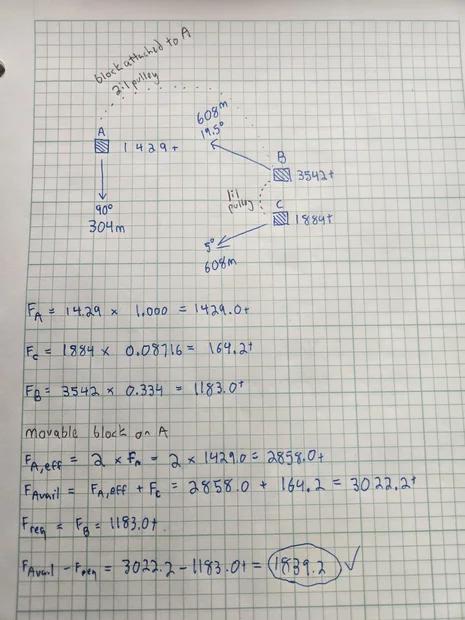 block attached to A
2:1 pulley
608m
19.5°
A
1429t
B
3542t
1:1
pulley
C
1884t
90°
304m
5°
608m
F_A = 14.29 × 1.000 = 1429.0t
F_C = 1884 × 0.08716 = 164.2t
F_B = 3542 × 0.334 = 1183.0t
movable block on A
F_A,eff = 2 × F_A = 2 × 1429.0 = 2858.0t
F_Avail = F_A,eff + F_C = 2858.0 + 164.2 = 3022.2t
F_req = F_B = 1183.0t
F_Avail - F_req = 3022.2 - 1183.0t = 1839.2 ✓